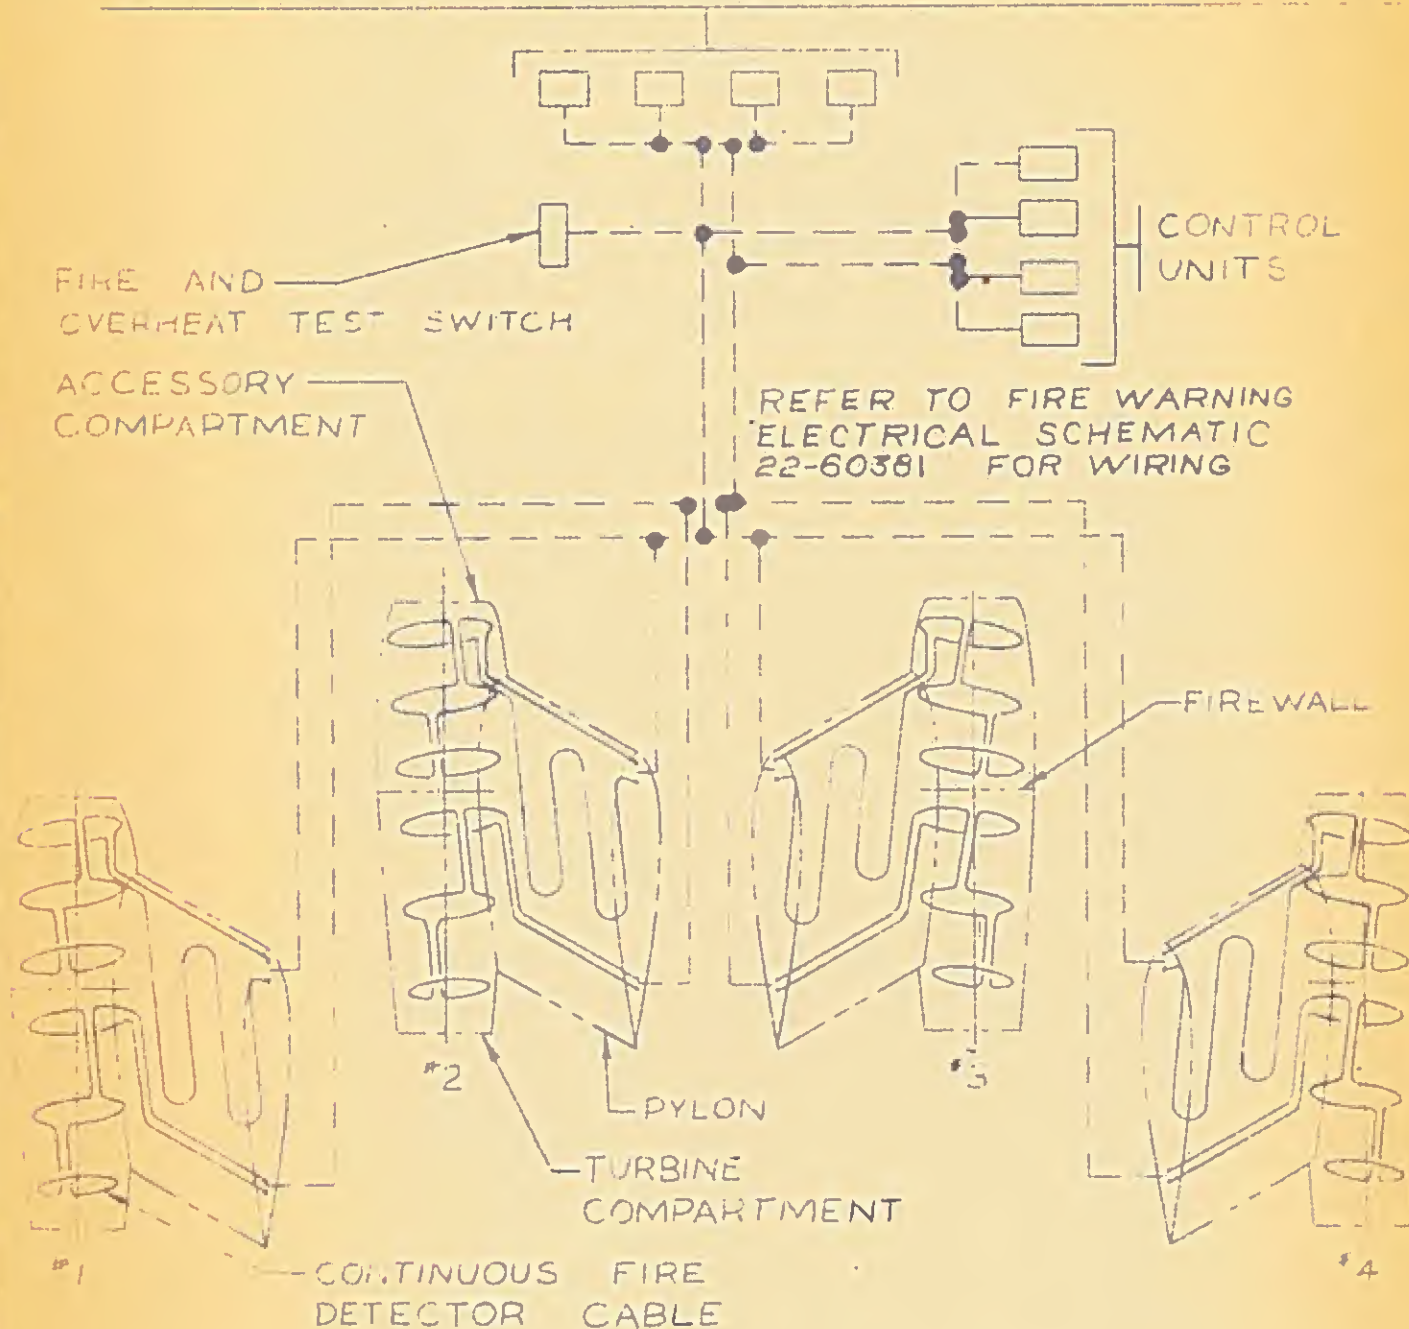 CONTROL
UNITS
FIRE AND
OVERHEAT TEST SWITCH
ACCESSORY
COMPARTMENT
REFER TO FIRE WARNING
ELECTRICAL SCHEMATIC
22-60381 FOR WIRING
FIREWALL
#2
#3
PYLON
TURBINE
COMPARTMENT
#1
#4
CONTINUOUS FIRE
DETECTOR CABLE